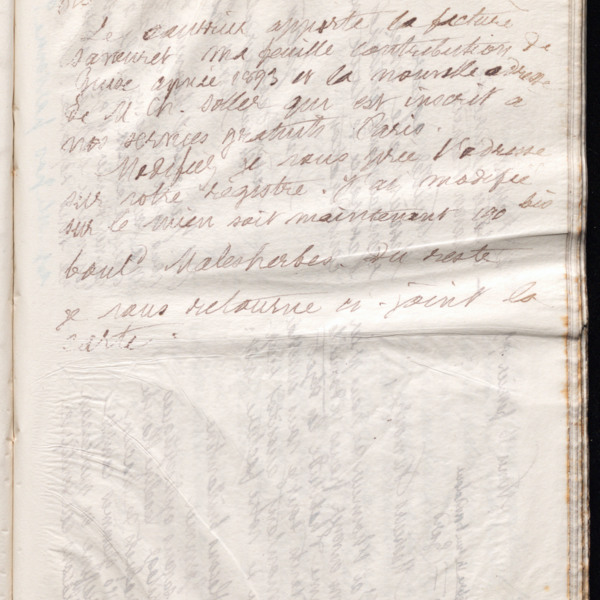 Le courrier apporte la facture
Savouret, ma feuille contribution de
Zwee année 1893 et la nouvelle adresse
de M. Ch. Soller qui est inscrit à
nos services gratuits Paris.
Modifiez je vous prie l'adresse
sur votre registre. J'ai modifié
sur le mien soit maintenant 190 bis
boul^d Malesherbes. Du reste
je vous retourne ci-joint la
carte.